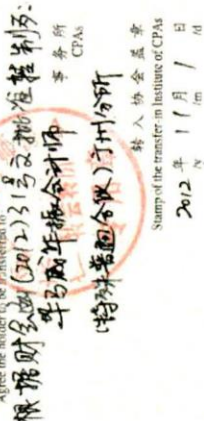 Agree the holder to be transferred to
根据财会函(2012)31号文批准转制为:
毕马威华振会计师
事务所
CPAs
(特殊普通合伙)广州分所
转入协会盖章
Stamp of the transfer-in Institute of CPAs
2012年11月1日
/y /m /d